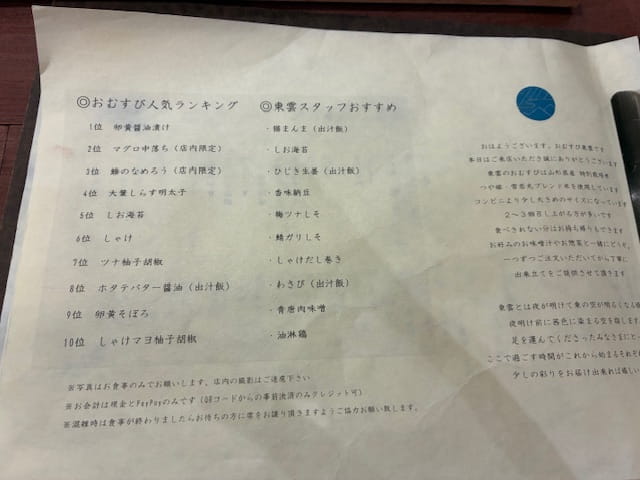 ◎おむすび人気ランキング
1位 卵黄醤油漬け
2位 マグロ中落ち（店内限定）
3位 鯵のなめろう（店内限定）
4位 大葉しらす明太子
5位 しお海苔
6位 しゃけ
7位 ツナ柚子胡椒
8位 ホタテバター醤油（出汁飯）
9位 卵黄そぼろ
10位 しゃけマヨ柚子胡椒
◎東雲スタッフおすすめ
・猫まんま（出汁飯）
・しお海苔
・ひじき生姜（出汁飯）
・香味納豆
・梅ツナしそ
・鯖ガリしそ
・しゃけだし巻き
・わさび（出汁飯）
・青唐肉味噌
・油淋鶏
※写真はお食事のみでお願いします、店内の撮影はご遠慮下さい
※お会計は現金とPayPayのみです（QRコードからの事前決済のみクレジット可）
※混雑時は食事が終わりましたらお待ちの方に席をお譲り頂きますようご協力お願い致します。
おはようございます、おむすび東雲です
本日はご来店いただき誠にありがとうございます
東雲のおむすびは山形県産 特別栽培米
つや姫・雪若丸ブレンド米を使用しています
コンビニより少し大きめのサイズになっています
２〜３個召し上がる方が多いです
食べきれない分はお持ち帰りもできます
お好みのお味噌汁やお惣菜と一緒にどうぞ
一つずつご注文いただいてから丁寧に
出来立てをご提供させて頂きます
東雲とは夜が明けて東の空が明るくなる頃
夜明け前に茜色に染まる空を指します
足を運んでくださったみなさまにと
ここで過ごす時間がこれから始まるそれぞれ
少しの彩りをお届け出来れば嬉しい